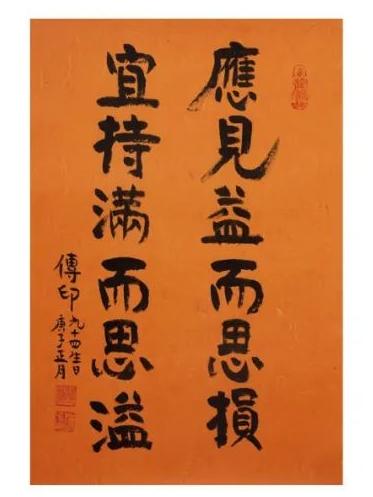 應見益而思損
宜持滿而思溢
傳印九十四生日
庚子正月